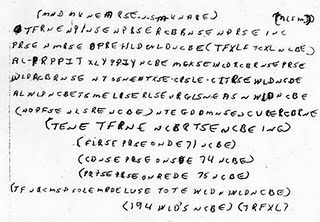 (MND MKNEARSE-N-S-M-KNARE) (ACSM)
TFRNE NPINSE NPBSERCBBNSE NPRSE INC
PRSE NMRSE OPREHLDWLD NCBE (TFXLF TCXL NCBE)
AL-PRPPIT XLYPPIY NCBE MGKSE INCDRCBRNSE PRSE
WLDRCBRNSE NTSSNENTXSE-CRSLE-CITRSE WLD NCBE
ALWLPNCBETSMELRSERLSEURGLSNEASNWLDNCBE
(NOPFSENLSRENCBE) NTEGDDMNSENCURERCBRNE
(TENE TFRNE NCBRTSENCBEING)
(FLRSE PRSEONDE 71 NCBE)
(CDNSE PRSEONSDE 74 NCBE)
(PRTSE PRSEONREDE 75 NCBE)
(TFNQCMSPSOLEMRDELUSE TOTE WLDNWLDNCBE)
(194 WLD'S NCBE) (TRFXL)